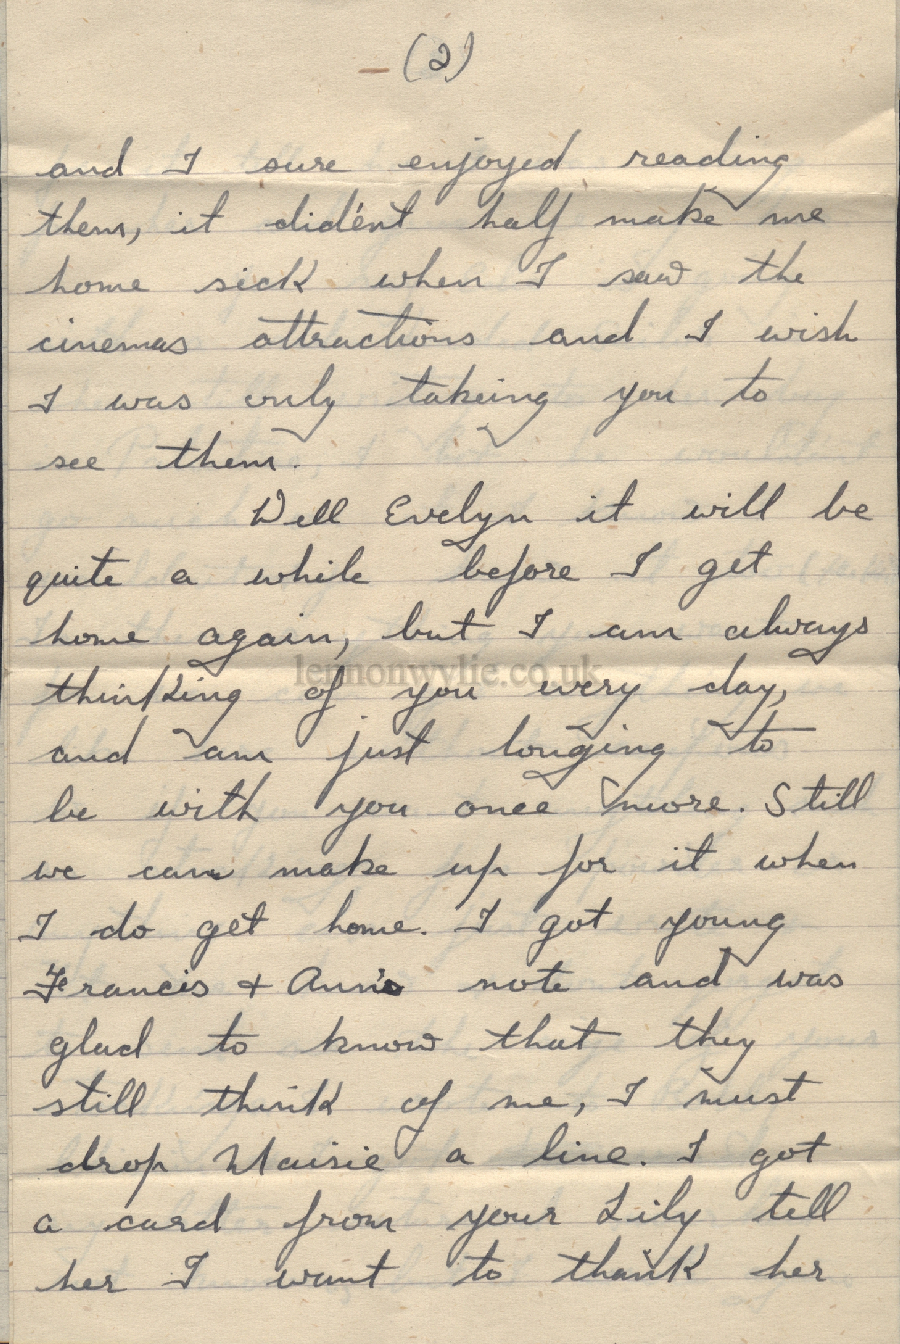 (2)
and I sure enjoyed reading
them, it did'ent half make me
home sick when I saw the
cinemas attractions and I wish
I was only takeing you to
see them.
Well Evelyn it will be
quite a while before I get
home again, but I am always
lennonwylie.co.uk
thinking of you every day,
and am just longing to
be with you once more. Still
we can make up for it when
I do get home. I got young
Francis + Ann's note and was
glad to know that they
still think of me, I must
drop Maisie a line. I got
a card from your Lily tell
her I want to thank her